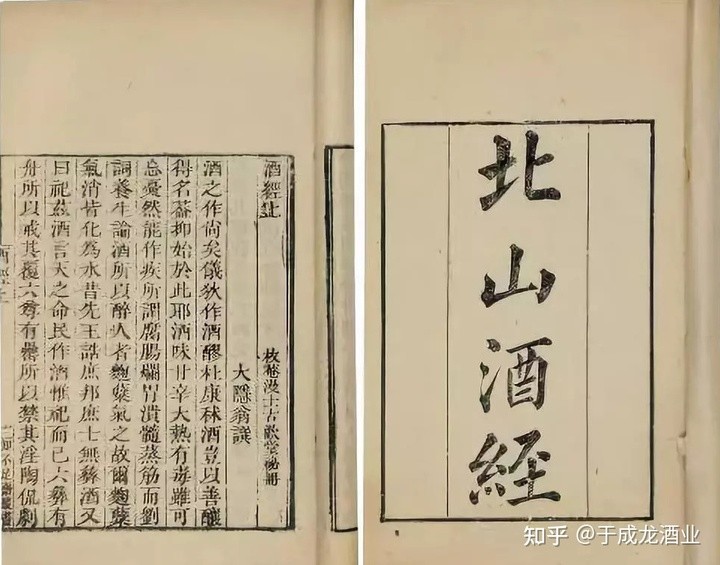 北山酒經
酒經上
枚菴漫士古歡堂秘冊
大隱翁譔
酒之作尚矣儀狄作酒醪杜康秫酒豈以善釀
得名蓋抑始於此耶酒味甘辛大熱有毒雖可
忘憂然能作疾所謂腐腸爛胃潰髓蒸筋而劉
詞養生論酒所以醉人者麴糵氣之故爾麴糵
氣消皆化為水昔先王誥庶邦庶士無彝酒又
曰祀茲酒言天之命民作酒惟祀而已六彝有
舟所以戒其覆六尊有罍所以禁其淫陶侃劇
知乎 @于成龙酒业